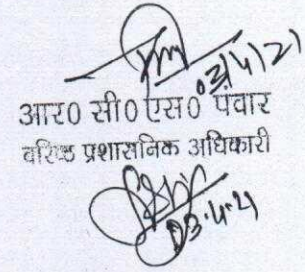 03/4/21
आर0 सी0 एस0 पंवार
वरिष्ठ प्रशासनिक अधिकारी
03.4.21